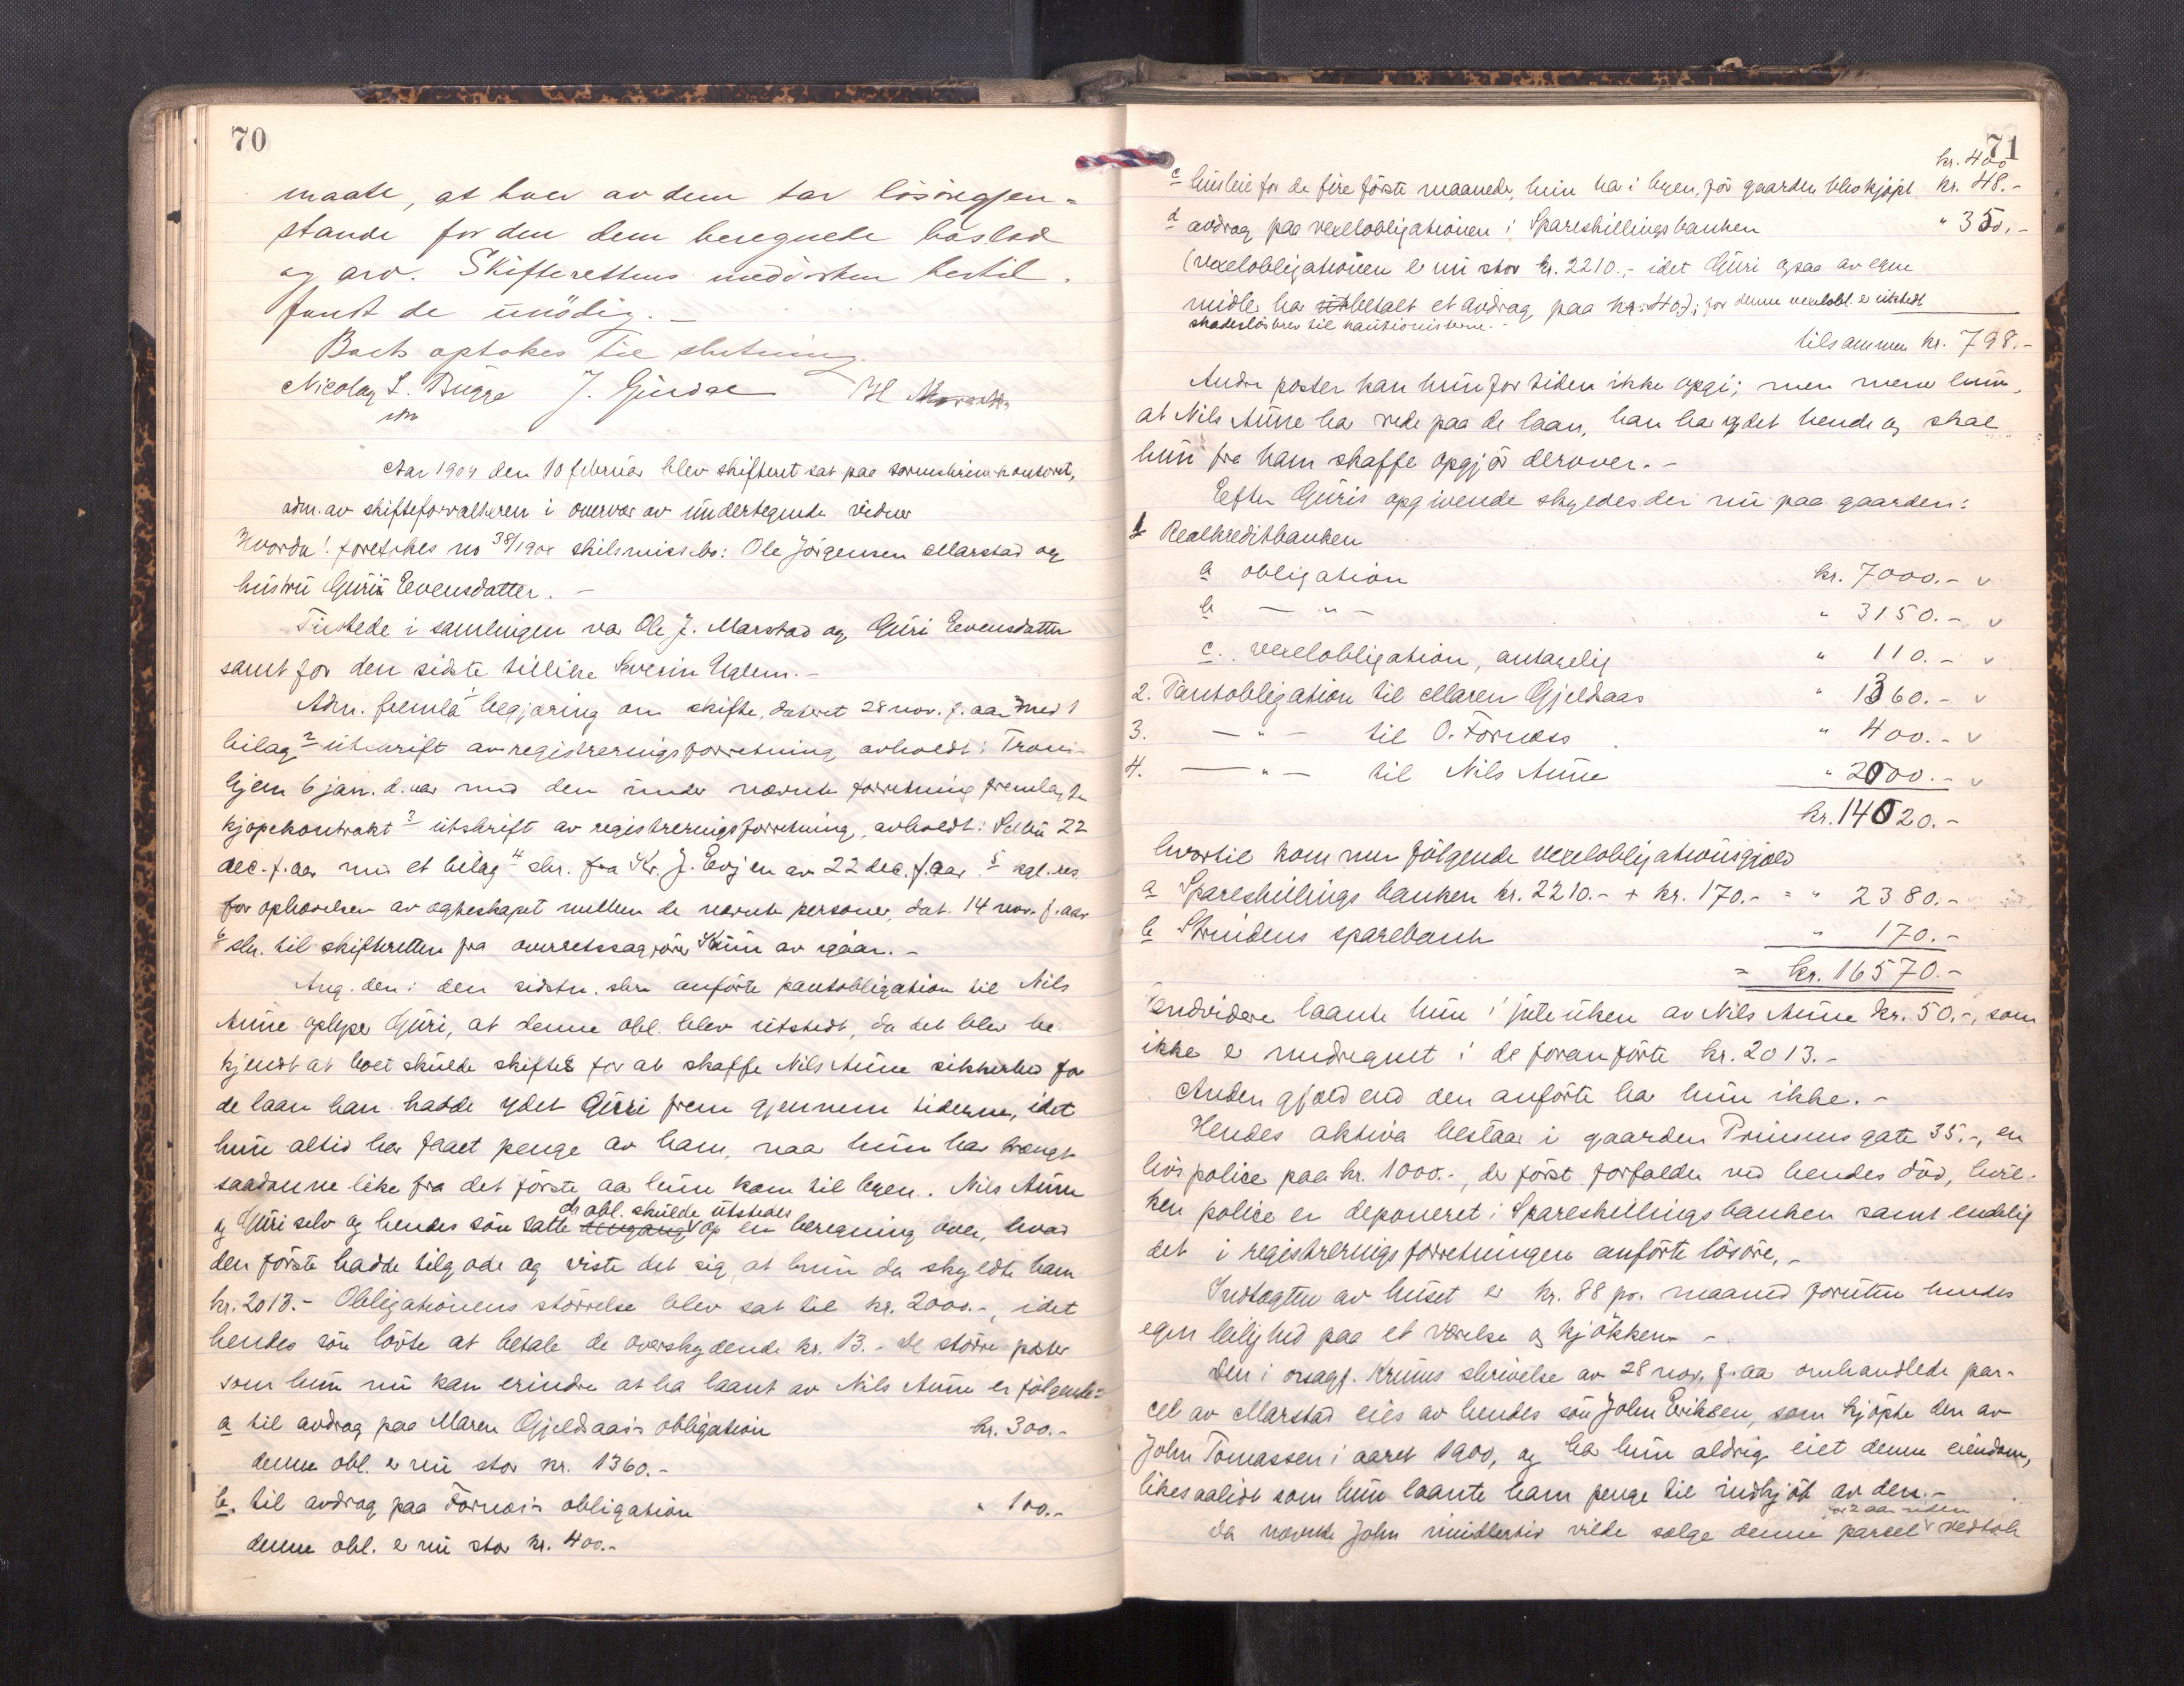 70
maate, at hver av dem tar lösöregjen=
stande for den dem beregnede boslod
og arv. Skifterettens medvirken hertil
fandt de unödig.-
Boets optokes til slutning.
Nicolay L. Bugge J. Gjerdal H.
Aar 1904 den 10 februar blev skifteret sat paa sorenskriverkontoret,
adm. av skifteforvalteren i overvær av undertegnede vidner
Hvorda! foretokes no 38/1904 skilsmissebo: Ole Jörgensen Marstad og
hustru Guru Eevensdatter. -
Tilstede i samlingen var Ole J. Marstad og Guri Eevensdatter
samt for den sidste tillike Severin Uglem.-
Adm. fremla 1 begjæring om skifte, dateret 28 nov. f. aar med 1
bilag 2 utskrift av registreringsforretning avholdt i Trond-
hjem 6 jan. d. aar med den under nævnte forretning fremlagte
kjöpekontrakt 3 utskrift av registreringsforretning, avholdt i Selbu 22
dec. f. aar med et bilag 4 skr. fra Kr. J. Evjen av 22 dec. f. aar 5 kgl. res.
for ophævelsen av egteskapet mellem de nævnte personer, dat. 14 nov. f. aar
6 skr. til skifteretten fra overretssagförer Krüm av igaar.-
Ang. den i den sidstn. skr. anförte pantobligation til Nils
Aune oplyser Guri, at denne obl. blev utstedt, da det blev be-
kjendt at boet skulde skiftes for at skaffe Nils Aune sikkerhed for
de laan han hadde ydet Guri frem gjennem tiderne, idet
hun altid har faaet penge av ham, naar hun har trængt
saadanne like fra det förste aa hun kom til byen. Nils Aune
da obl. skulde utstedes
og Guri selv og hendes sön satte dengang op en beregning over, hvad
den förste hadde tilgode og viste det sig, at hun da skyldte ham
kr. 2013.- Obligationens störrelse blev sat til kr. 2000.-, idet
hendes sön lovte at betale de overskydende kr. 13.- De större poster
som hun nu kan erindre at ha laant av Nils Aune er fölgende:
a til avdrag paa Maren Gjeldsaas's obligation kr. 300.-
denne obl. er nu stor kr. 1360.-
b. til avdrag paa Fornæs's obligation " 100.-
denne obl. er nu stor kr. 400.-
71
kr. 400
c husleie for de fire förste maaneder, hun var i byen, för gaarden blev kjöpt kr. 48.-
d avdrag paa vexelobligationen i Spareskillingsbanken " 350.-
(vexelobligationen er nu stor kr. 2210.- idet Guri ogsaa av egne
midler har utbetalt et avdrag paa kr. 40); for denne vexelobl. er utstedt
skadeslösbrev til kautionisterne.-
tilsammen kr. 798.-
Andre poster kan hun for tiden ikke opgi; men mener hun,
at Nils Aune har rede paa de laan, han har ydet hende og skal
hun fra ham skaffe opgjör derover.-
Efter Guris opgivende skyldes der nu paa gaarden:
1 Realkreditbanken
a obligation kr. 7000.- v
b — " — " 3150.- v
c. vexelobligation, antagelig " 110.- v
2. Pantobligation til Maren Gjeldsaas " 1360.- v
3. — " — til O. Fornæss " 400.- v
4. — " — til Nils Aune " 2000.- v
kr. 14020.-
hvortil kommer fölgende vexelobligationsgjæld
a Spareskillingsbanken kr. 2210.- + kr. 170.- = " 2380.-
b Strindens sparebank " 170.-
= kr. 16570.-
Endvidere laante hun i juleuken av Nils Aune kr. 50.-, som
ikke er medregnet i de foranförte kr. 2013.-
Anden gjæld end den anförte har hun ikke.-
Hendes aktiva bestaar i gaarden Prinsens gate 35.-, en
livspolice paa kr. 1000.-, der först forfalder ved hendes död, hvil-
ken police er deponeret i Spareskillingsbanken samt endelig
det i registreringsforretningen anförte lösöre,-
Indtægten av huset er kr. 88 pr. maaned foruten hendes
egen leilighed paa et værelse og kjökken -
Den i orsagf. Krüms skrivelse av 28 nov. f. aar omhandlede par-
cel av Marstad eies av hendes sön John Eriksen, som kjöpte den av
John Tomassen i aaret 1900, og har hun aldrig eiet denne eiendom,
likesaalidt som hun laante ham penge til indkjöb av den.-
for 2 aar siden
Da nævnte John imidlertid vilde sælge denne parcel vedtok